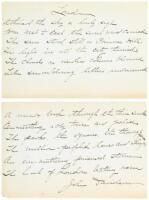 London
Athwart the sky a lowly sigh
From west to east the sweet wind carried
The sun stood still on Primrose Hill
His light in all the city tarried
The clouds on viewless columns bloomed
Like smouldering lilies unconsumed
A rumour broke through the thin smoke
Enwreathing abbey tower and palace
The parks the squares the
The million-peopled lanes and alleys
An ever-muttering prisoned storm
The heart of London beating warm
John Davidson